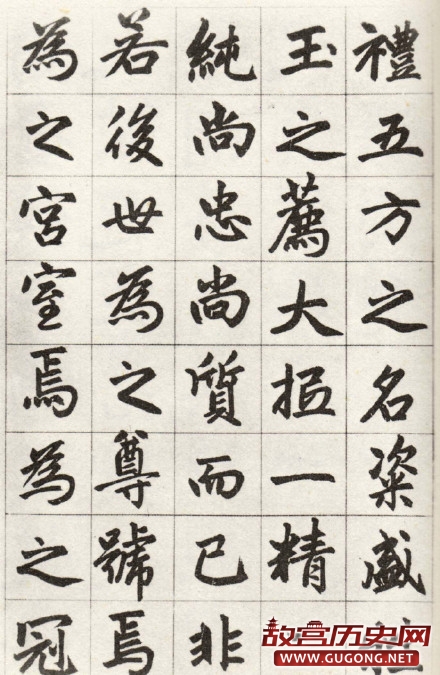 禮五方之名粢盛
玉之薦大抵一精
純尚忠尚質而已非
若後世為之尊號焉
為之宮室焉為之冠
故宫历史网
WWW.GUGONG.NET